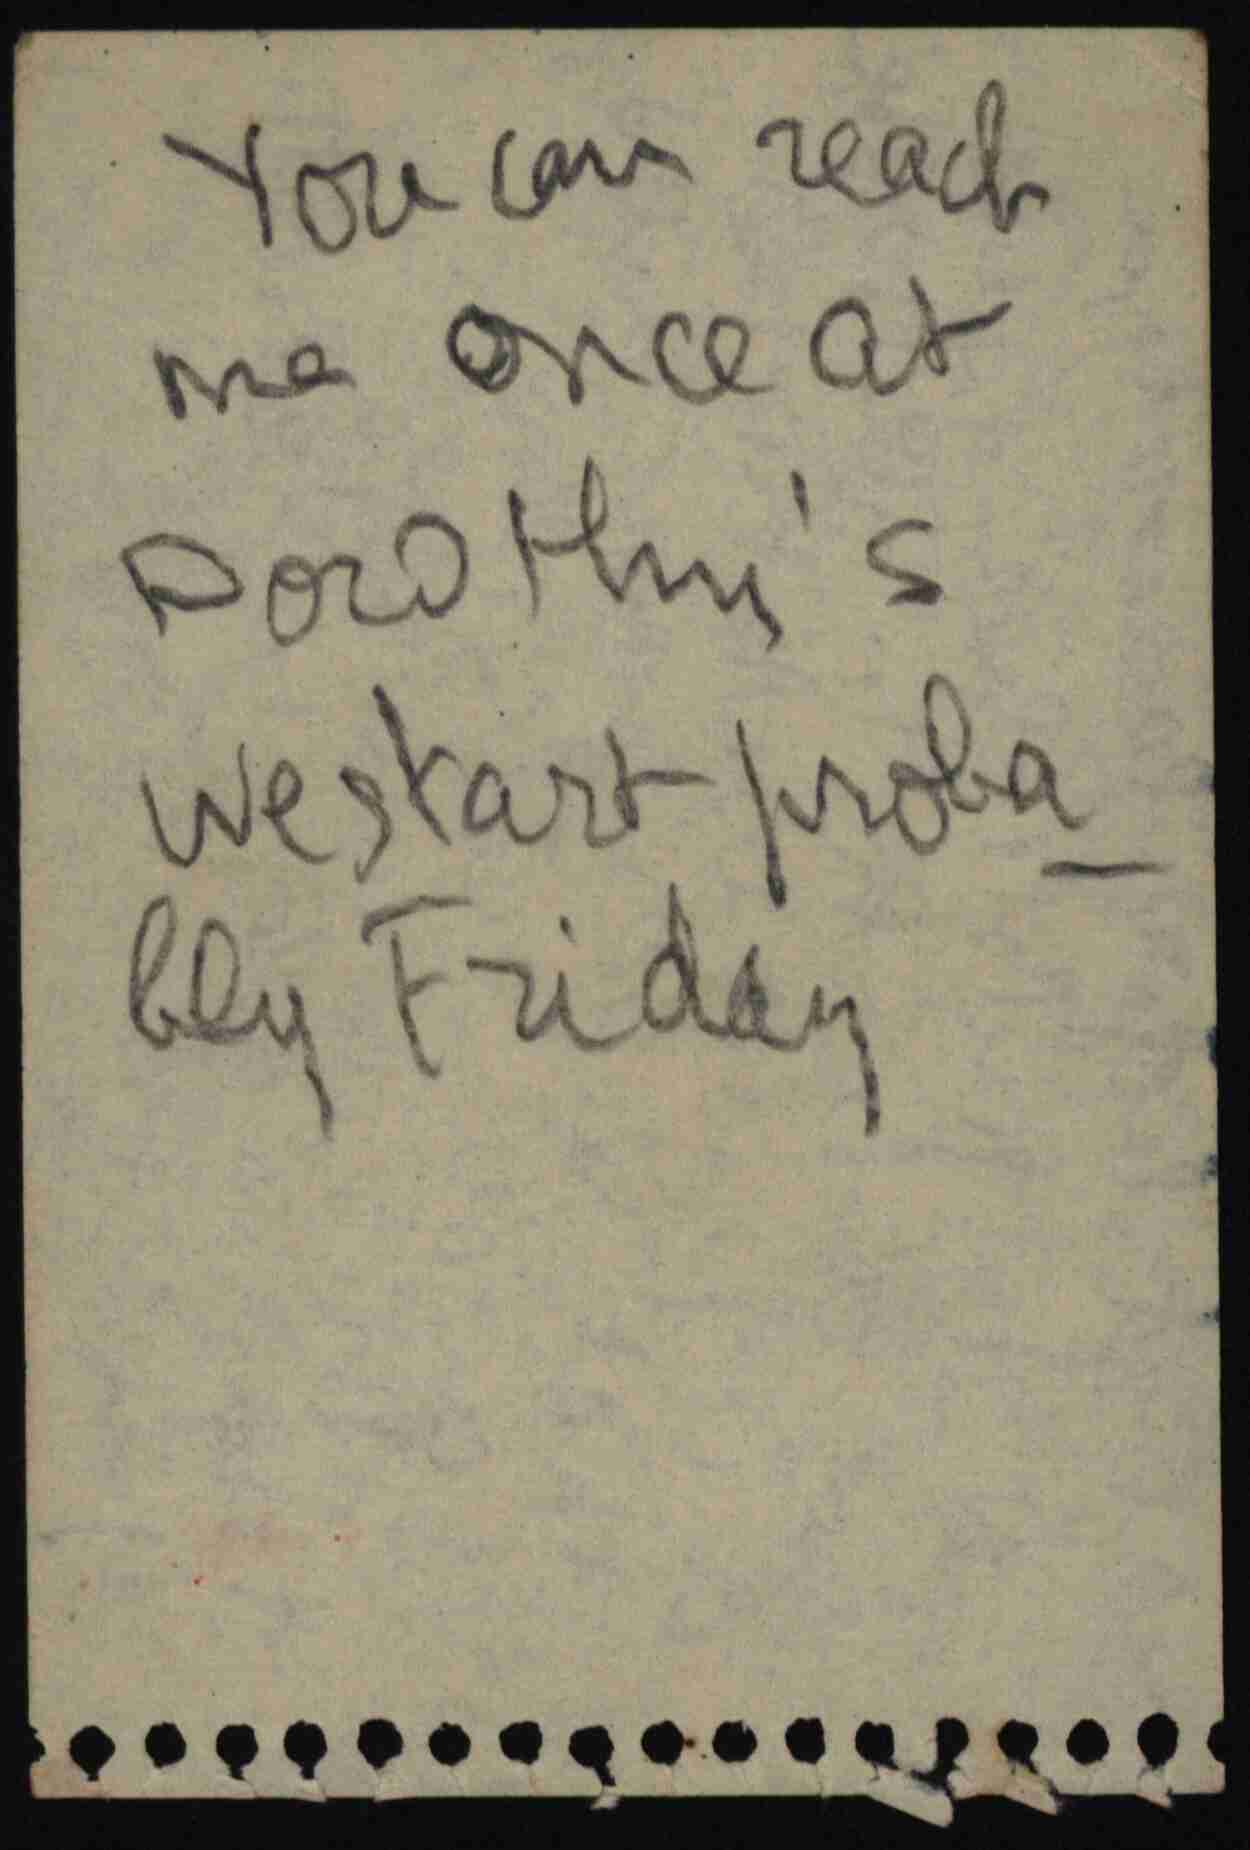 You can reach
me once at
Dorothy's
we start proba_
bly Friday